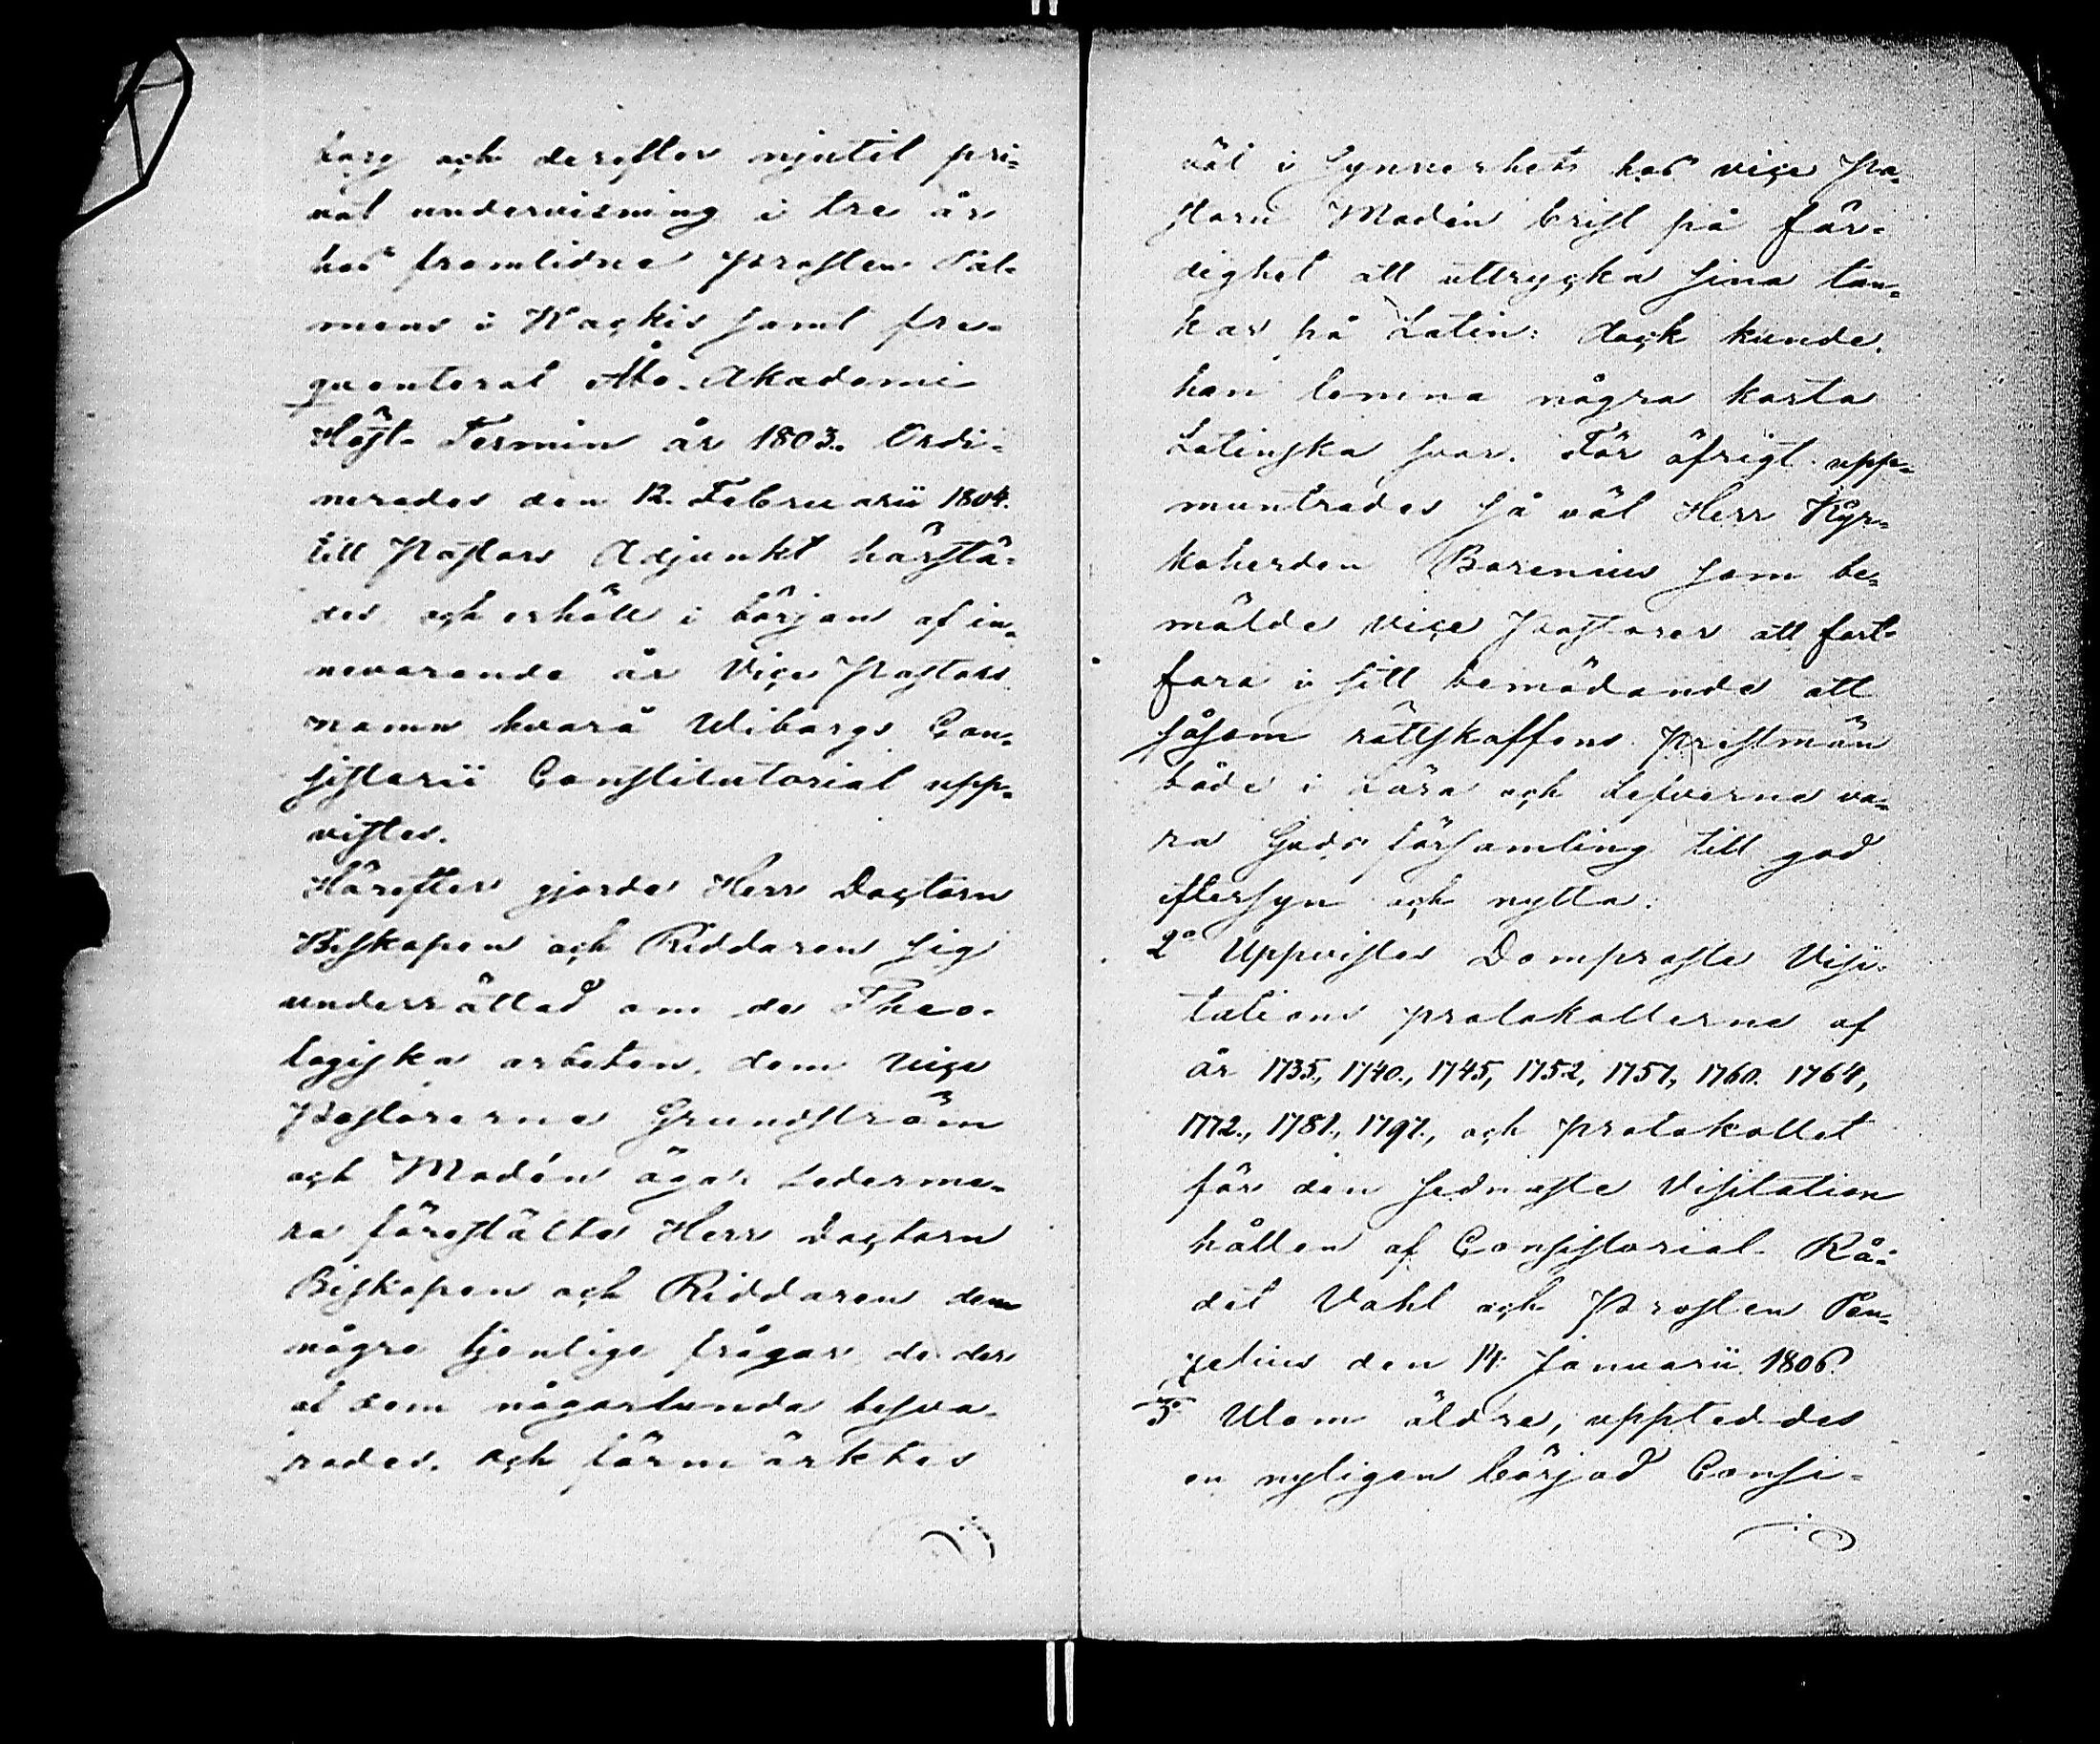 borg och derefter njutit pri-
vat undervisning i tre år
hos framlidne Prosten Pål-
mans i Kackis samt fre-
quenterat Åbo Akademi
Höst Termin år 1803. Ordi-
nerades den 12. Februarii 1804.
till Pastors Adjunkt härstä-
des och erhöll i början af in-
nevarande år Vice Pastors
namn hvarå Wiborgs Con-
sistorii Constitutorial upp-
vistes.
Härefter gjorde Herr Doctorn
Biskopen och Riddaren sig
underrättad om de Theo-
logiska arbeten, dem vice
Pastorerne Grundström
och Modén äga. Sederme-
ra förestälte Herr Doctorn
Biskopen och Riddaren dem
någre tjenlige frågar, de der
af dem någorlunda besva-
rades. Och förmärktes
väl i synnerhet hos vice Pa-
storn Modén brist på fär-
dighet att uttrycka sina tan-
kar på Latin: dock kunde
han lemna några korta
Latinska svar. För öfrigt upp-
muntrades så väl Herr Kyr-
koherden Borenius som be-
mälde vice Pastorer att fort-
fara i sitt bemödande att
såsom rättskaffens Prestmän
både i Lära och Lefverne va-
ra Guds församling till god
eftersyn och nytta.
2o Uppvistes Domproste Visi-
tations protokollerne af
år 1735., 1740., 1745, 1752, 1757, 1760. 1764,
1772., 1781., 1797., och protokollet
för den sednaste Visitation
hållen af Consistorial Rå-
det Vahl och Prosten Pen-
zelius den 14. Januarii 1806.
3o Utom äldre, uppteddes
en nyligen börjad Consi-